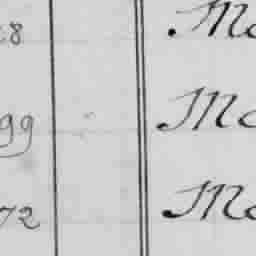 28 Ma
99 Ma
72 Ma